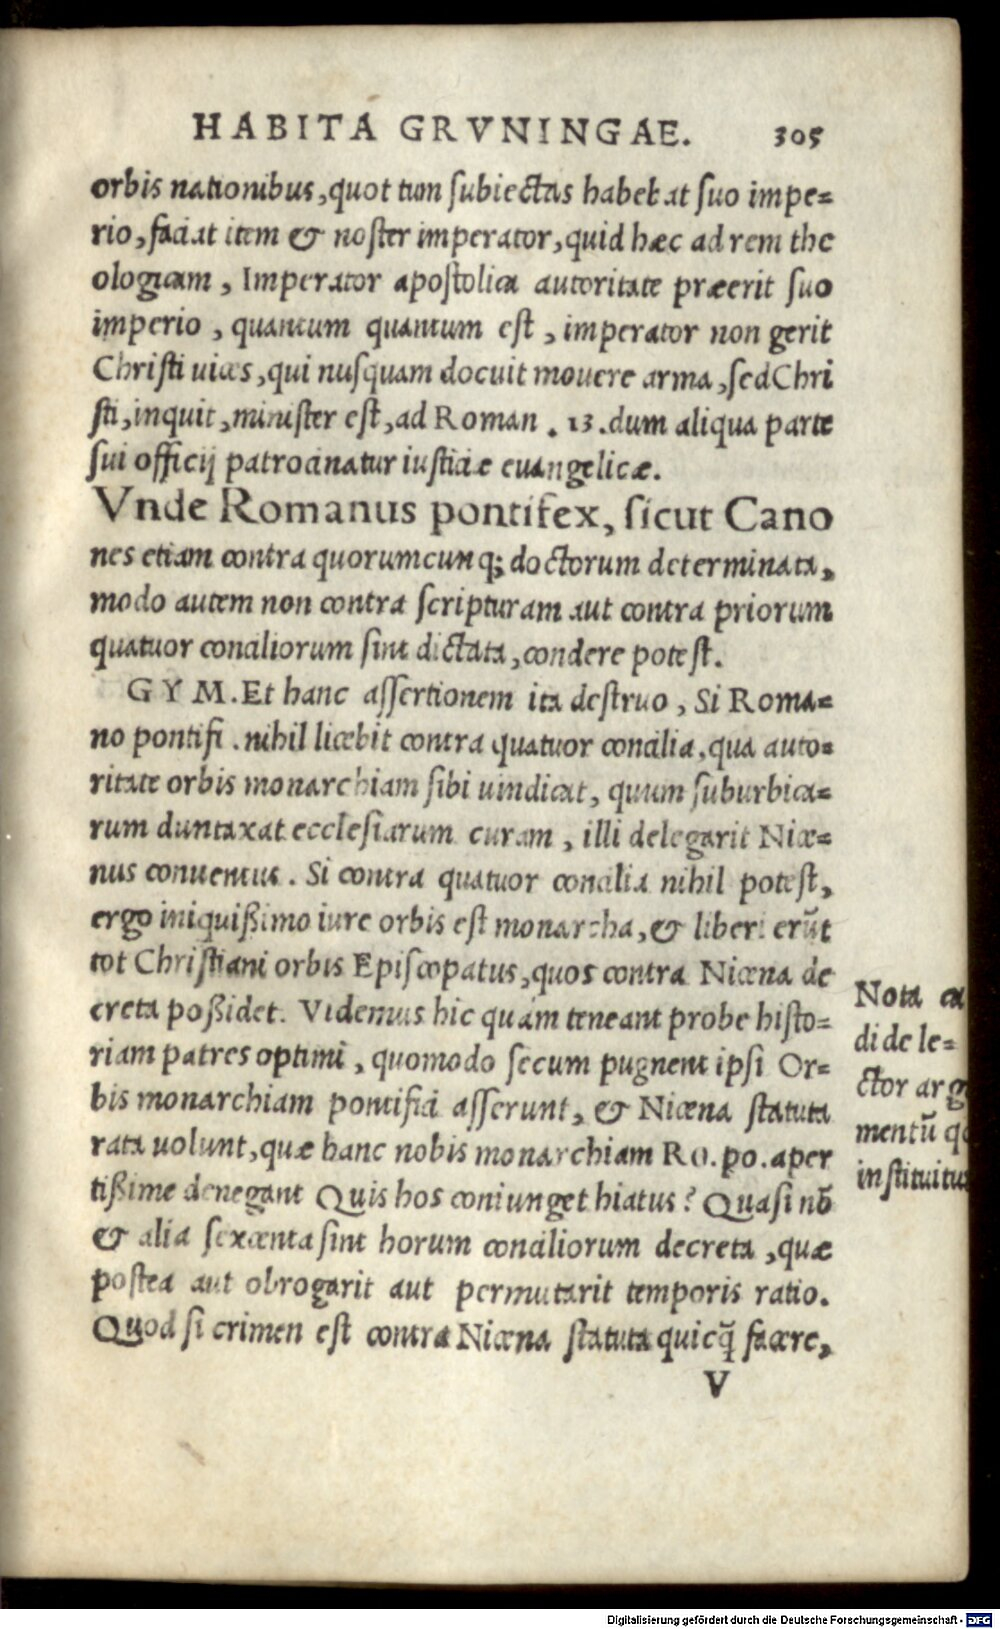 HABITA GRVNINGAE. 305
orbis nationibus, quot tum subiectas habebat suo impe=
rio, faciat item & noster imperator, quid hæc ad rem the
ologicam, Imperator apostolica autoritate præerit suo
imperio, quantum quantum est, imperator non gerit
Christi uices, qui nusquam docuit mouere arma, sed Chri
sti, inquit, minister est, ad Roman. 13. dum aliqua parte
sui officij patrocinatur iusticiæ euangelicæ.
Vnde Romanus pontifex, sicut Cano
nes etiam contra quorumcunq; doctorum determinata,
modo autem non contra scripturam aut contra priorum
quatuor conciliorum sint dictata, condere potest.
GYM. Et hanc assertionem ita destruo, Si Roma=
no pontifi. nihil licebit contra quatuor concilia, qua auto=
ritate orbis monarchiam sibi uindicat, quum suburbica=
rum duntaxat ecclesiarum curam, illi delegarit Nicæ=
nus conuentus. Si contra quatuor concilia nihil potest,
ergo iniquißimo iure orbis est monarcha, & liberi erũt
tot Christiani orbis Episcopatus, quos contra Nicena de
creta poßidet. Videmus hic quam teneant probe histo=
riam patres optimi, quomodo secum pugnent ipsi Or=
bis monarchiam pontifici asserunt, & Nicena statuta
rata uolunt, quæ hanc nobis monarchiam Ro. po. aper
tißime denegant Quis hos coniunget hiatus? Quasi nõ
& alia sexcenta sint horum conciliorum decreta, quæ
postea aut obrogarit aut permutarit temporis ratio.
Quod si crimen est contra Nicena statuta quicq̃ facere,
V
Nota
di de le=
ctor
mentũ